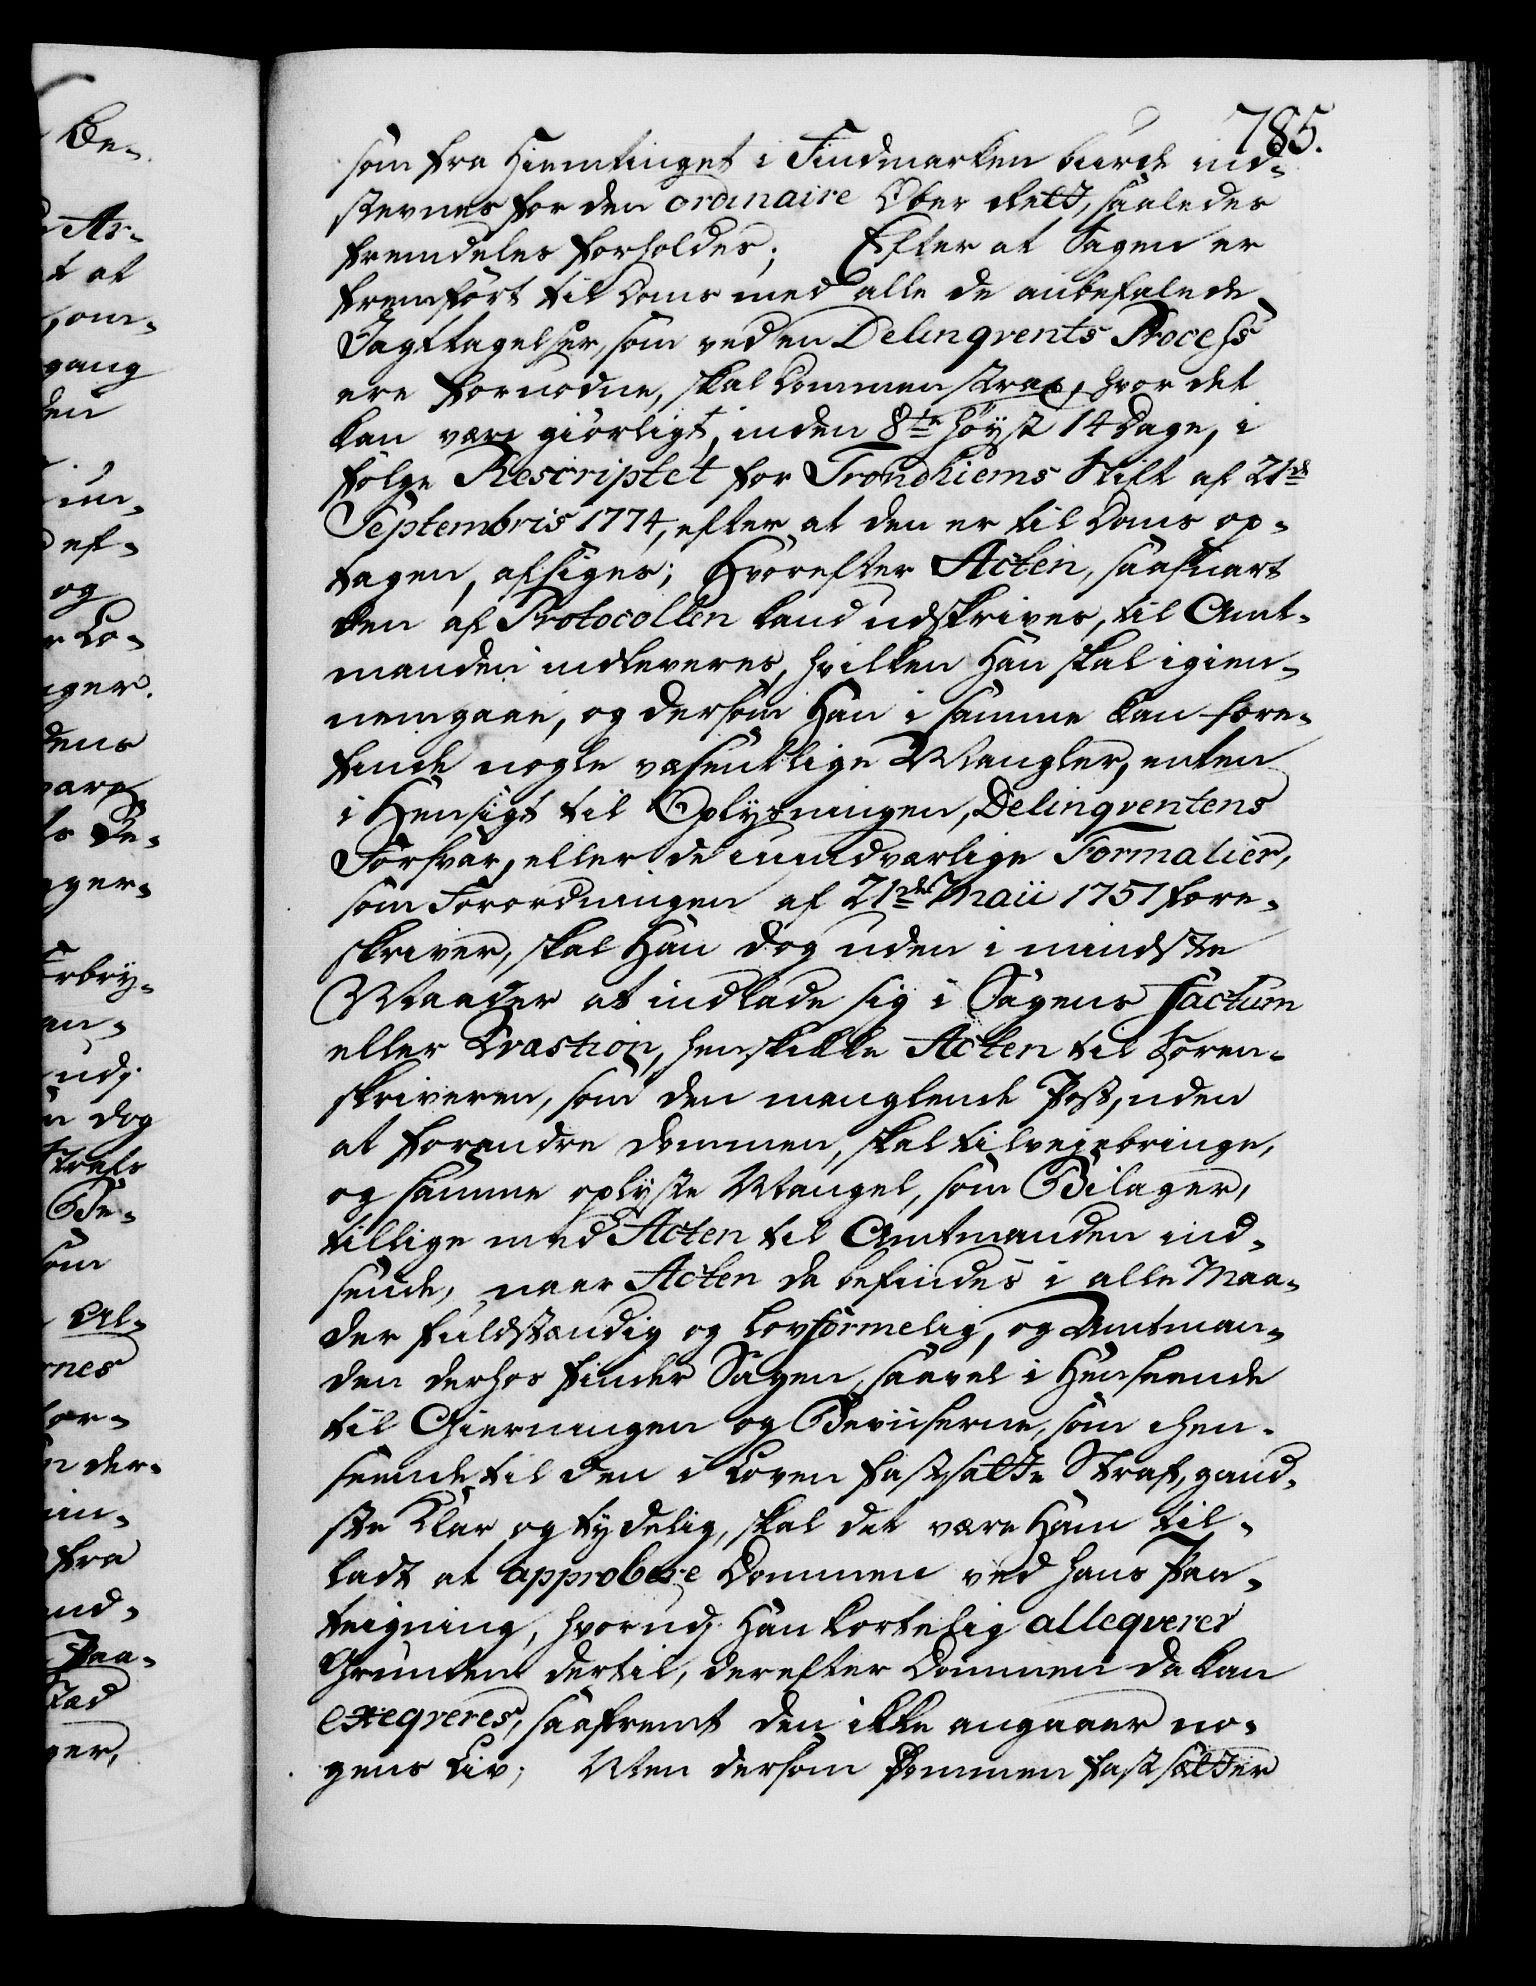 785.
som fra Hiemtinget i Findmarken burde ind-
stevnes for den ordinaire Ober Rett, saaledes
fremdeles forholdes; Efter at Sagen er
fremført til Doms med alle de anbefalede
Jagttagelser, som ved en Delinqvents Process
ere fornødne, skal Dommen strax, hvor det
kan være giørligt, inden 8te høyst 14 Dage, i
følge Rescriptet for Trondhiems Stift af 21de
Septembris 1774, efter at den er til Doms op-
tagen, afsiges; Hvorefter Acten, saasnart
den af Protocollen kand udskrives, til Amt-
manden indleveres, hvilken Han skal igien-
nemgaae, og dersom Han i samme kan fore-
finde nogle væsentlige Mangler, enten
i Hensigt til Oplysningen, Delinqventens
Forsvar, eller de uundværlige Formalier,
som Forordningen af 21de Maii 1751 fore-
skriver, skal Han dog uden i mindste
Maader at indlade sig i Sagens Factum
eller Qvæstion, henskikke Acten til Soren-
skriveren, som den manglende Post, uden
at forandre Dommen, skal tilveiebringe,
og samme oplyste Mangel, som Bilager,
tillige med Acten til Amtmanden ind-
sende, naar Acten da befindes i alle Maa-
der fuldstændig og lovformelig, og Amtman-
den derhos finder Sagen, saavel i Henseende
til Gierningen og Beviiserne, som i hen-
seende til den i Loven fastsatte Straf, gand-
ske klar og tydelig, skal det være Ham til-
ladt at approbere Dommen ved hans Paa-
teigning, hvorudj Han kortelig alleqverer
Grunden dertil, derefter Dommen da kan
exeqveres, saafremt den ikke angaaer no-
gens Liv; Men dersom Dommen fastsætter